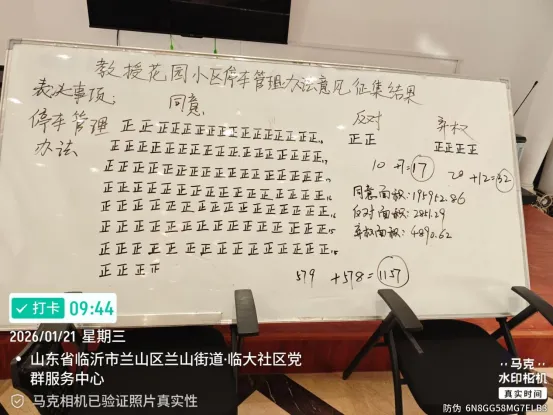 教授花园小区停车管理办法意见征集结果
表决事项:
停车管理
办法
同意
正正正正正正正正正正正正正正正
正正正正正正正正正正正正正正正
正正正正正正正正正正正正正正正
正正正正正正正正正正正正正正正
正正正正正正正正正正正正正正正
正正正正正正正正正正正正正正正
正正正正正正正正正正正正正正正
正正正正
579 +578=1157
反对
正正
10 +7=17
弃权
正正正正
20 +12=32
同意面积:195952.86
反对面积:2851.29
弃权面积:4890.62
打卡 09:44
2026/01/21 星期三
山东省临沂市兰山区兰山街道·临大社区党
群服务中心
马克相机已验证照片真实性
马克
水印相机
真实时间
防伪 6N8GG58MG7ELB